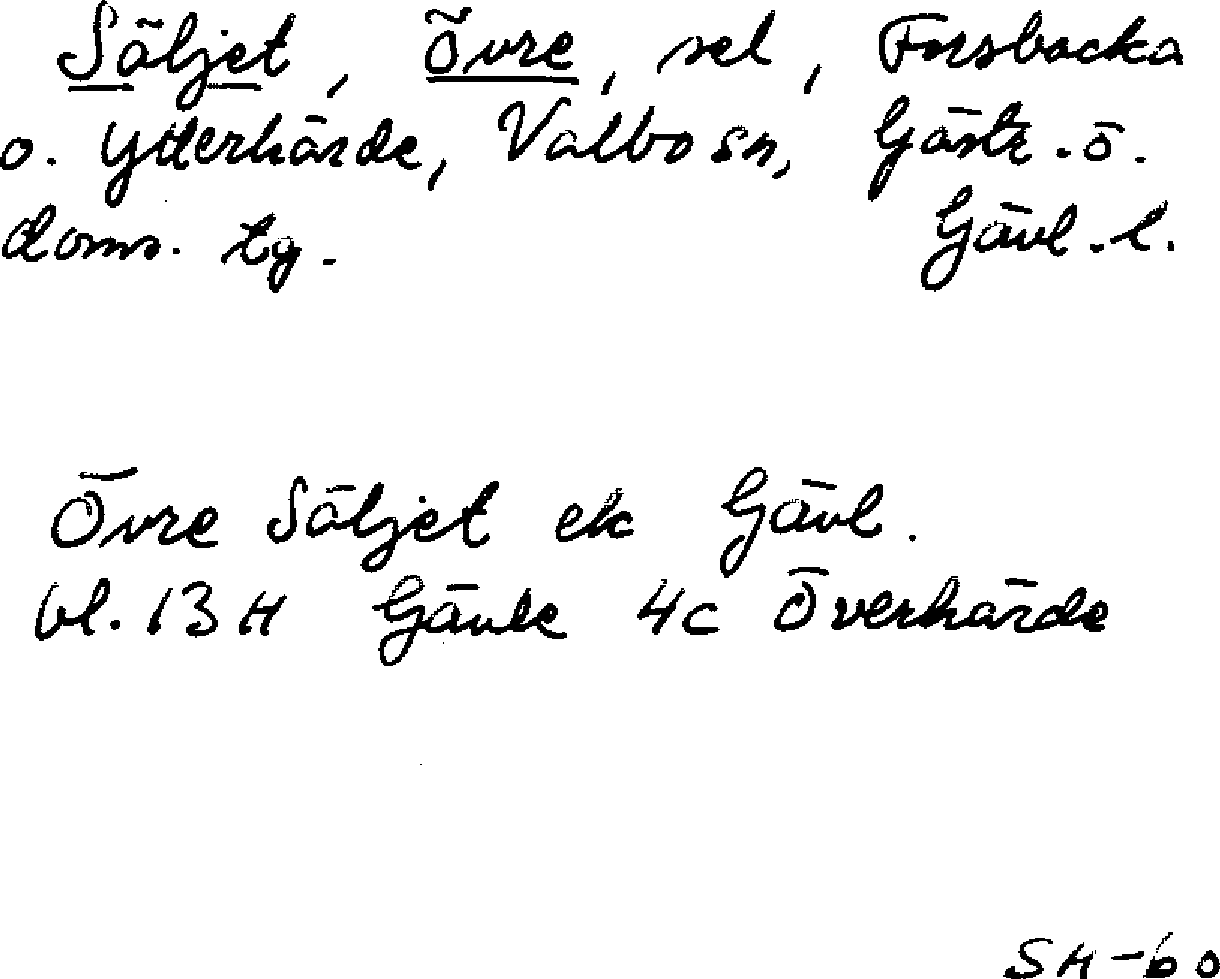 Säljet, Övre, sel, Forsbacka
o. Ytterhärde, Valbo sn, Gästr. ö.
doms. tg. Gävl. l.
Övre Säljet ek Gävl.
bl. 13H Gävle 4c Överhärde
SH-60